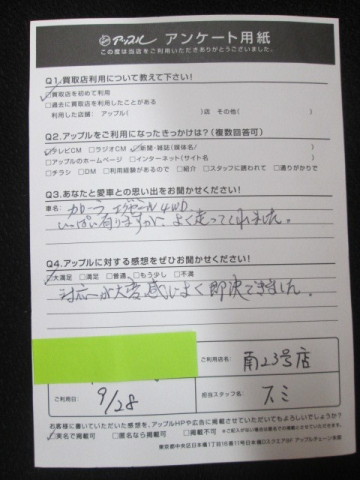 アップル アンケート用紙
この度は当店をご利用いただきありがとうございました。
Q1.買取店利用について教えて下さい!
□買取店を初めて利用
□過去に買取店を利用したことがある
利用した店舗/ アップル( )店 その他( )
Q2.アップルをご利用になったきっかけは?(複数回答可)
□テレビCM □ラジオCM □新聞・雑誌(媒体名/ )
□アップルのホームページ □インターネット(サイト名 )
□チラシ □DM □利用経験があるので □紹介 □スタッフに誘われて □通りがかりで
Q3.あなたと愛車との思い出をお聞かせください!
車名: カローラ 4WD
いっぱい有りますが、よく走ってくれました。
Q4.アップルに対する感想をぜひお聞かせください!
□大満足 □満足 □普通 □もう少し □不満
対応が大変感じよく即決できました。
ご利用店名: 南23号店
ご利用日: 9/28
担当スタッフ名: スミ
お客様に書いていただいた感想を、アップルHPや広告に掲載させていただいてもよろしいでしょうか?
□実名で掲載可 □匿名なら掲載可 □掲載不可